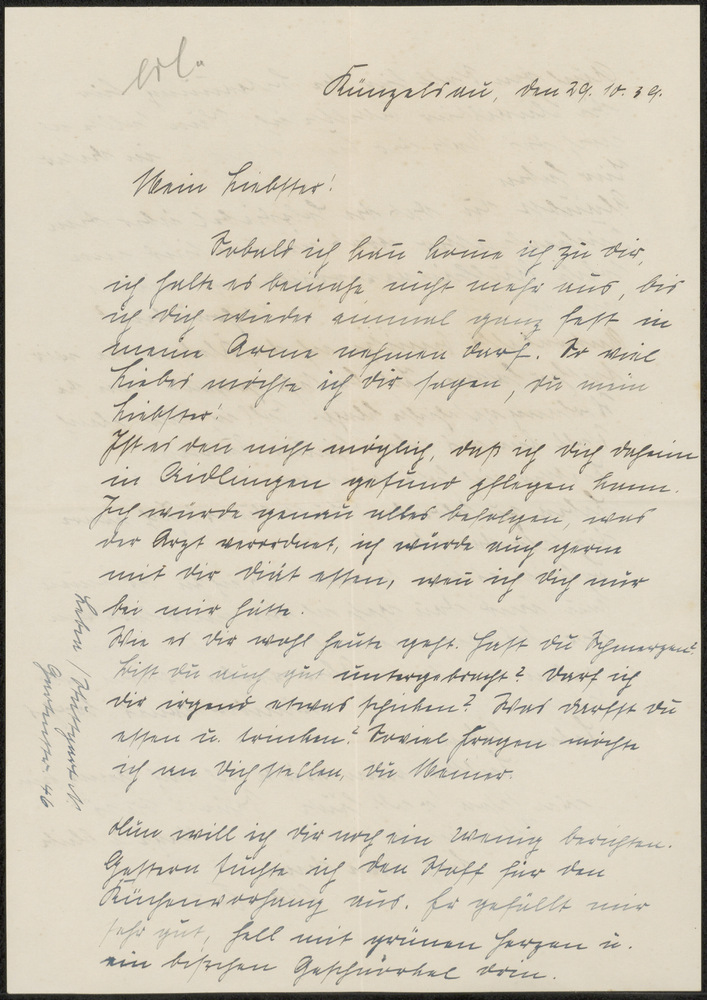 erl.
Künzelsau, den 29. 10. 39.
Mein Liebster!
Sobald ich kan kome ich zu dir,
ich halte es beinahe nicht mehr aus, bis
ich dich wieder einmal ganz fest in
meine Arme nehmen darf. So viel
Liebes möchte ich dir sagen, du mein
Liebster!
Ist es den nicht möglich, daß ich dich daheim
in Aidlingen gesund pflegen kann.
Ich würde genau alles befolgen, was
der Arzt verordnet, ich würde auch gerne
mit dir diät essen, wen ich dich nur
bei mir hätte.
Wie es dir wohl heute geht. Hast du Schmerzen?
Bist du auch gut untergebracht? Darf ich
dir irgend etwas schicken? Was darfst du
essen u. trinken? Soviel Fragen möchte
ich an dich stellen, du Meiner.
Nun will ich dir noch ein wenig berichten.
Gestern suchte ich den Stoff für den
Küchenvorhang aus. Er gefällt mir
sehr gut, hell mit grünen Herzen u.
ein bischen Geschnörkel drin.
/ Stuttgart N
46